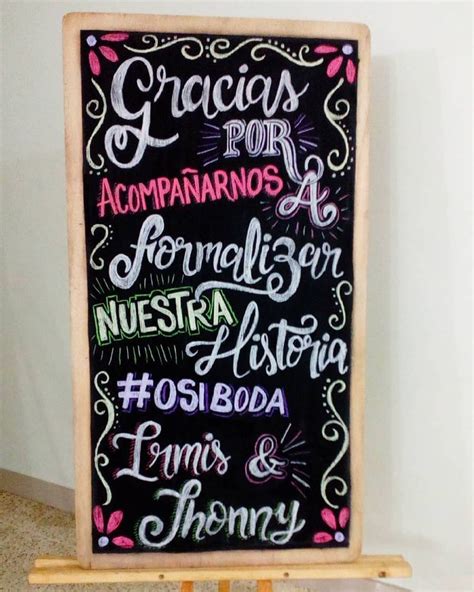 Gracias
POR
ACOMPAÑARNOS A
Formalizar
NUESTRA
Historia
#OSIBODA
Irmis &
Jhonny